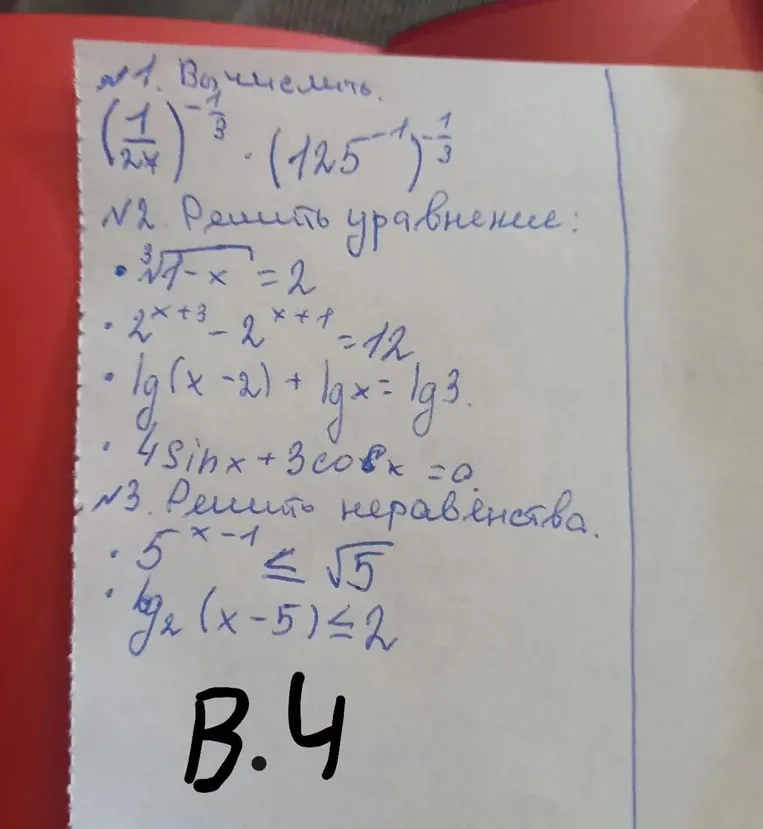 №1. Вычислить.
(1/27)^(-1/3) · (125^(-1))^(-1/3)
№2. Решить уравнение:
• ∛(1-x) = 2
• 2^(x+3) - 2^(x+1) = 12
• lg(x-2) + lgx = lg3.
• 4sinx + 3cosx = 0.
№3. Решить неравенства.
• 5^(x-1) ≤ √5
• log₂(x-5) ≤ 2
В.4